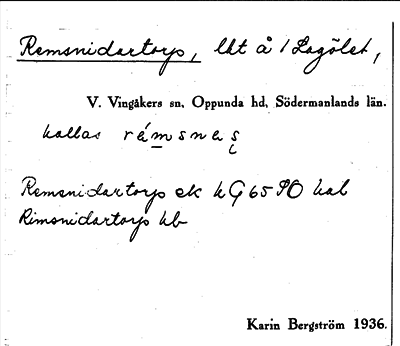 Remsnidartorp, lht å / Lagölet,
V. Vingåkers sn, Oppunda hd, Södermanlands län.
kallas rémsnes
Remsnidartorp ek hG65SO kal
Rimsnidartorp hb
Karin Bergström 1936.